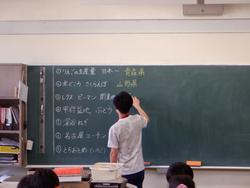 ① りんごの生産量 日本一 青森県
② 米どころ さくらんぼ 山形県
③ レタス ピーマン
④ 甲府盆地 ぶどう
⑤ 深谷ねぎ
⑥ 名古屋コーチン
⑦ とちおとめ(いちご)